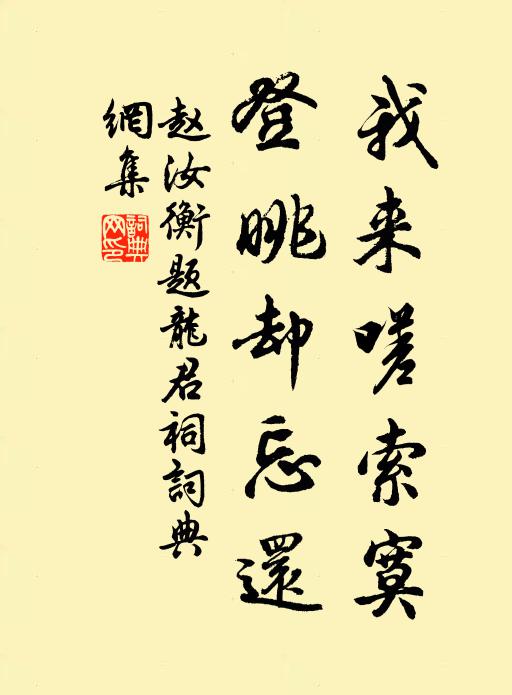 我来嗟索寞
登眺却忘還
赵汝衡题龍君祠詞典
網集
詞典網印